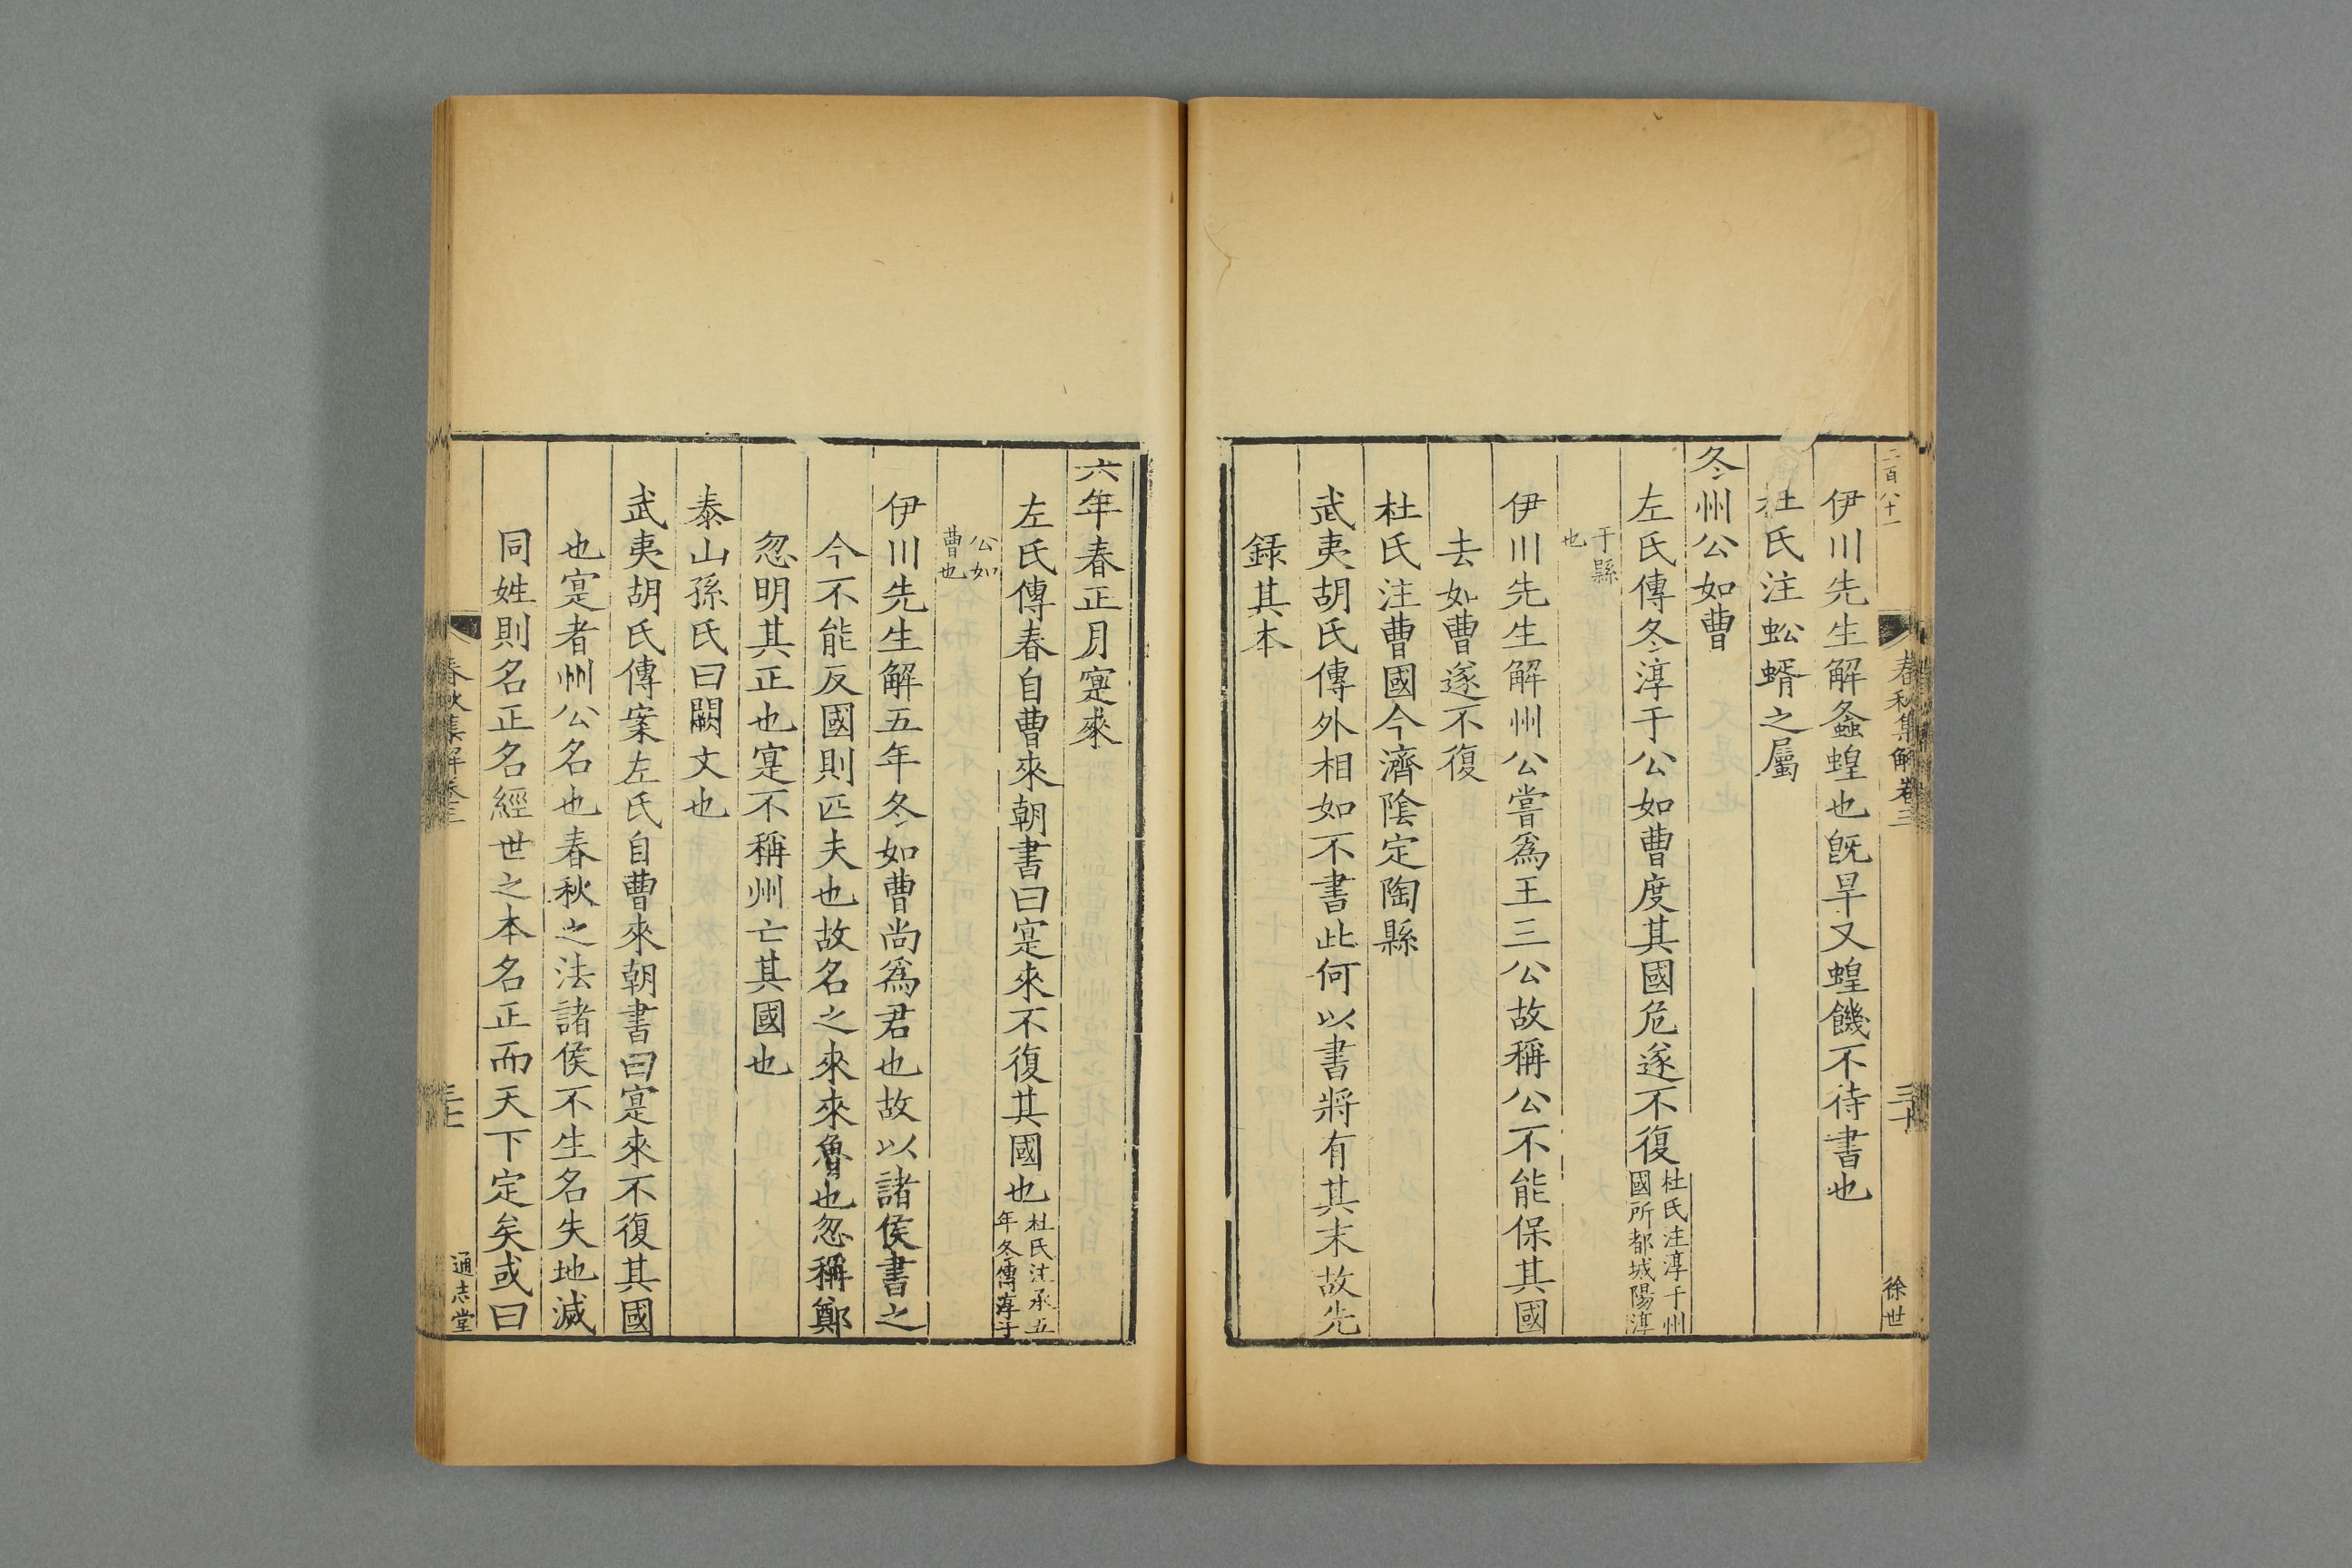 二百八十一
春秋集解卷三
三十
徐世
伊川先生解螽蝗也旣旱又蝗饑不待書也
杜氏注蚣蝑之屬
冬州公如曹
左氏傳冬淳于公如曹度其國危遂不復杜氏注淳于州國所都城陽淳
于縣也
伊川先生解州公嘗爲王三公故稱公不能保其國
去如曹遂不復
杜氏注曹國今濟陰定陶縣
武夷胡氏傳外相如不書此何以書將有其末故先
錄其本
六年春正月寔來
左氏傳春自曹來朝書曰寔來不復其國也杜氏注承五年冬傳淳于
公如曹也
伊川先生解五年冬如曹尚爲君也故以諸侯書之
今不能反國則匹夫也故名之來來魯也忽稱鄭
忽明其正也寔不稱州亡其國也
泰山孫氏曰闕文也
武夷胡氏傳案左氏自曹來朝書曰寔來不復其國
也寔者州公名也春秋之法諸侯不生名失地滅
同姓則名正名經世之本名正而天下定矣或曰
春秋集解卷三
通志堂